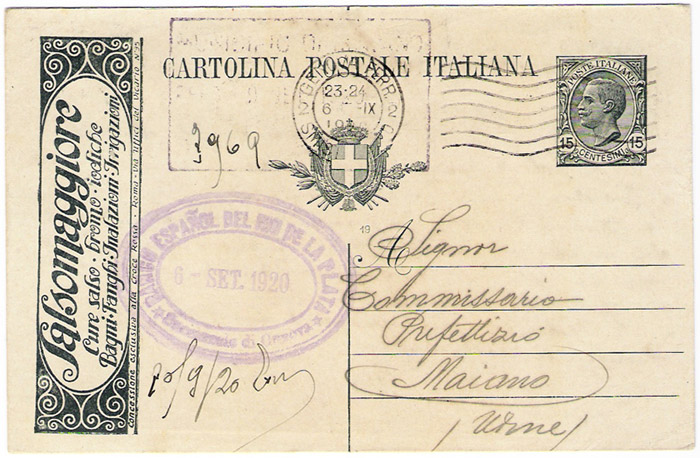 CARTOLINA POSTALE ITALIANA
POSTE ITALIANE
15 CENTESIMI 15
23-24
6 IX
3969
Salsomaggiore
Cure salso-bromo-iodiche
Bagni-Fanghi-Inalazioni-Irrigazioni
Concessione esclusiva alla Croce Rossa - Roma - via Uffici del Vicario N°35
ESPAÑOL DEL RIO DE LA PLATA
6 - SET. 1920
19
Al Signor
Commissario
Prefettizio
Maiano
(Udine)
20/9/20